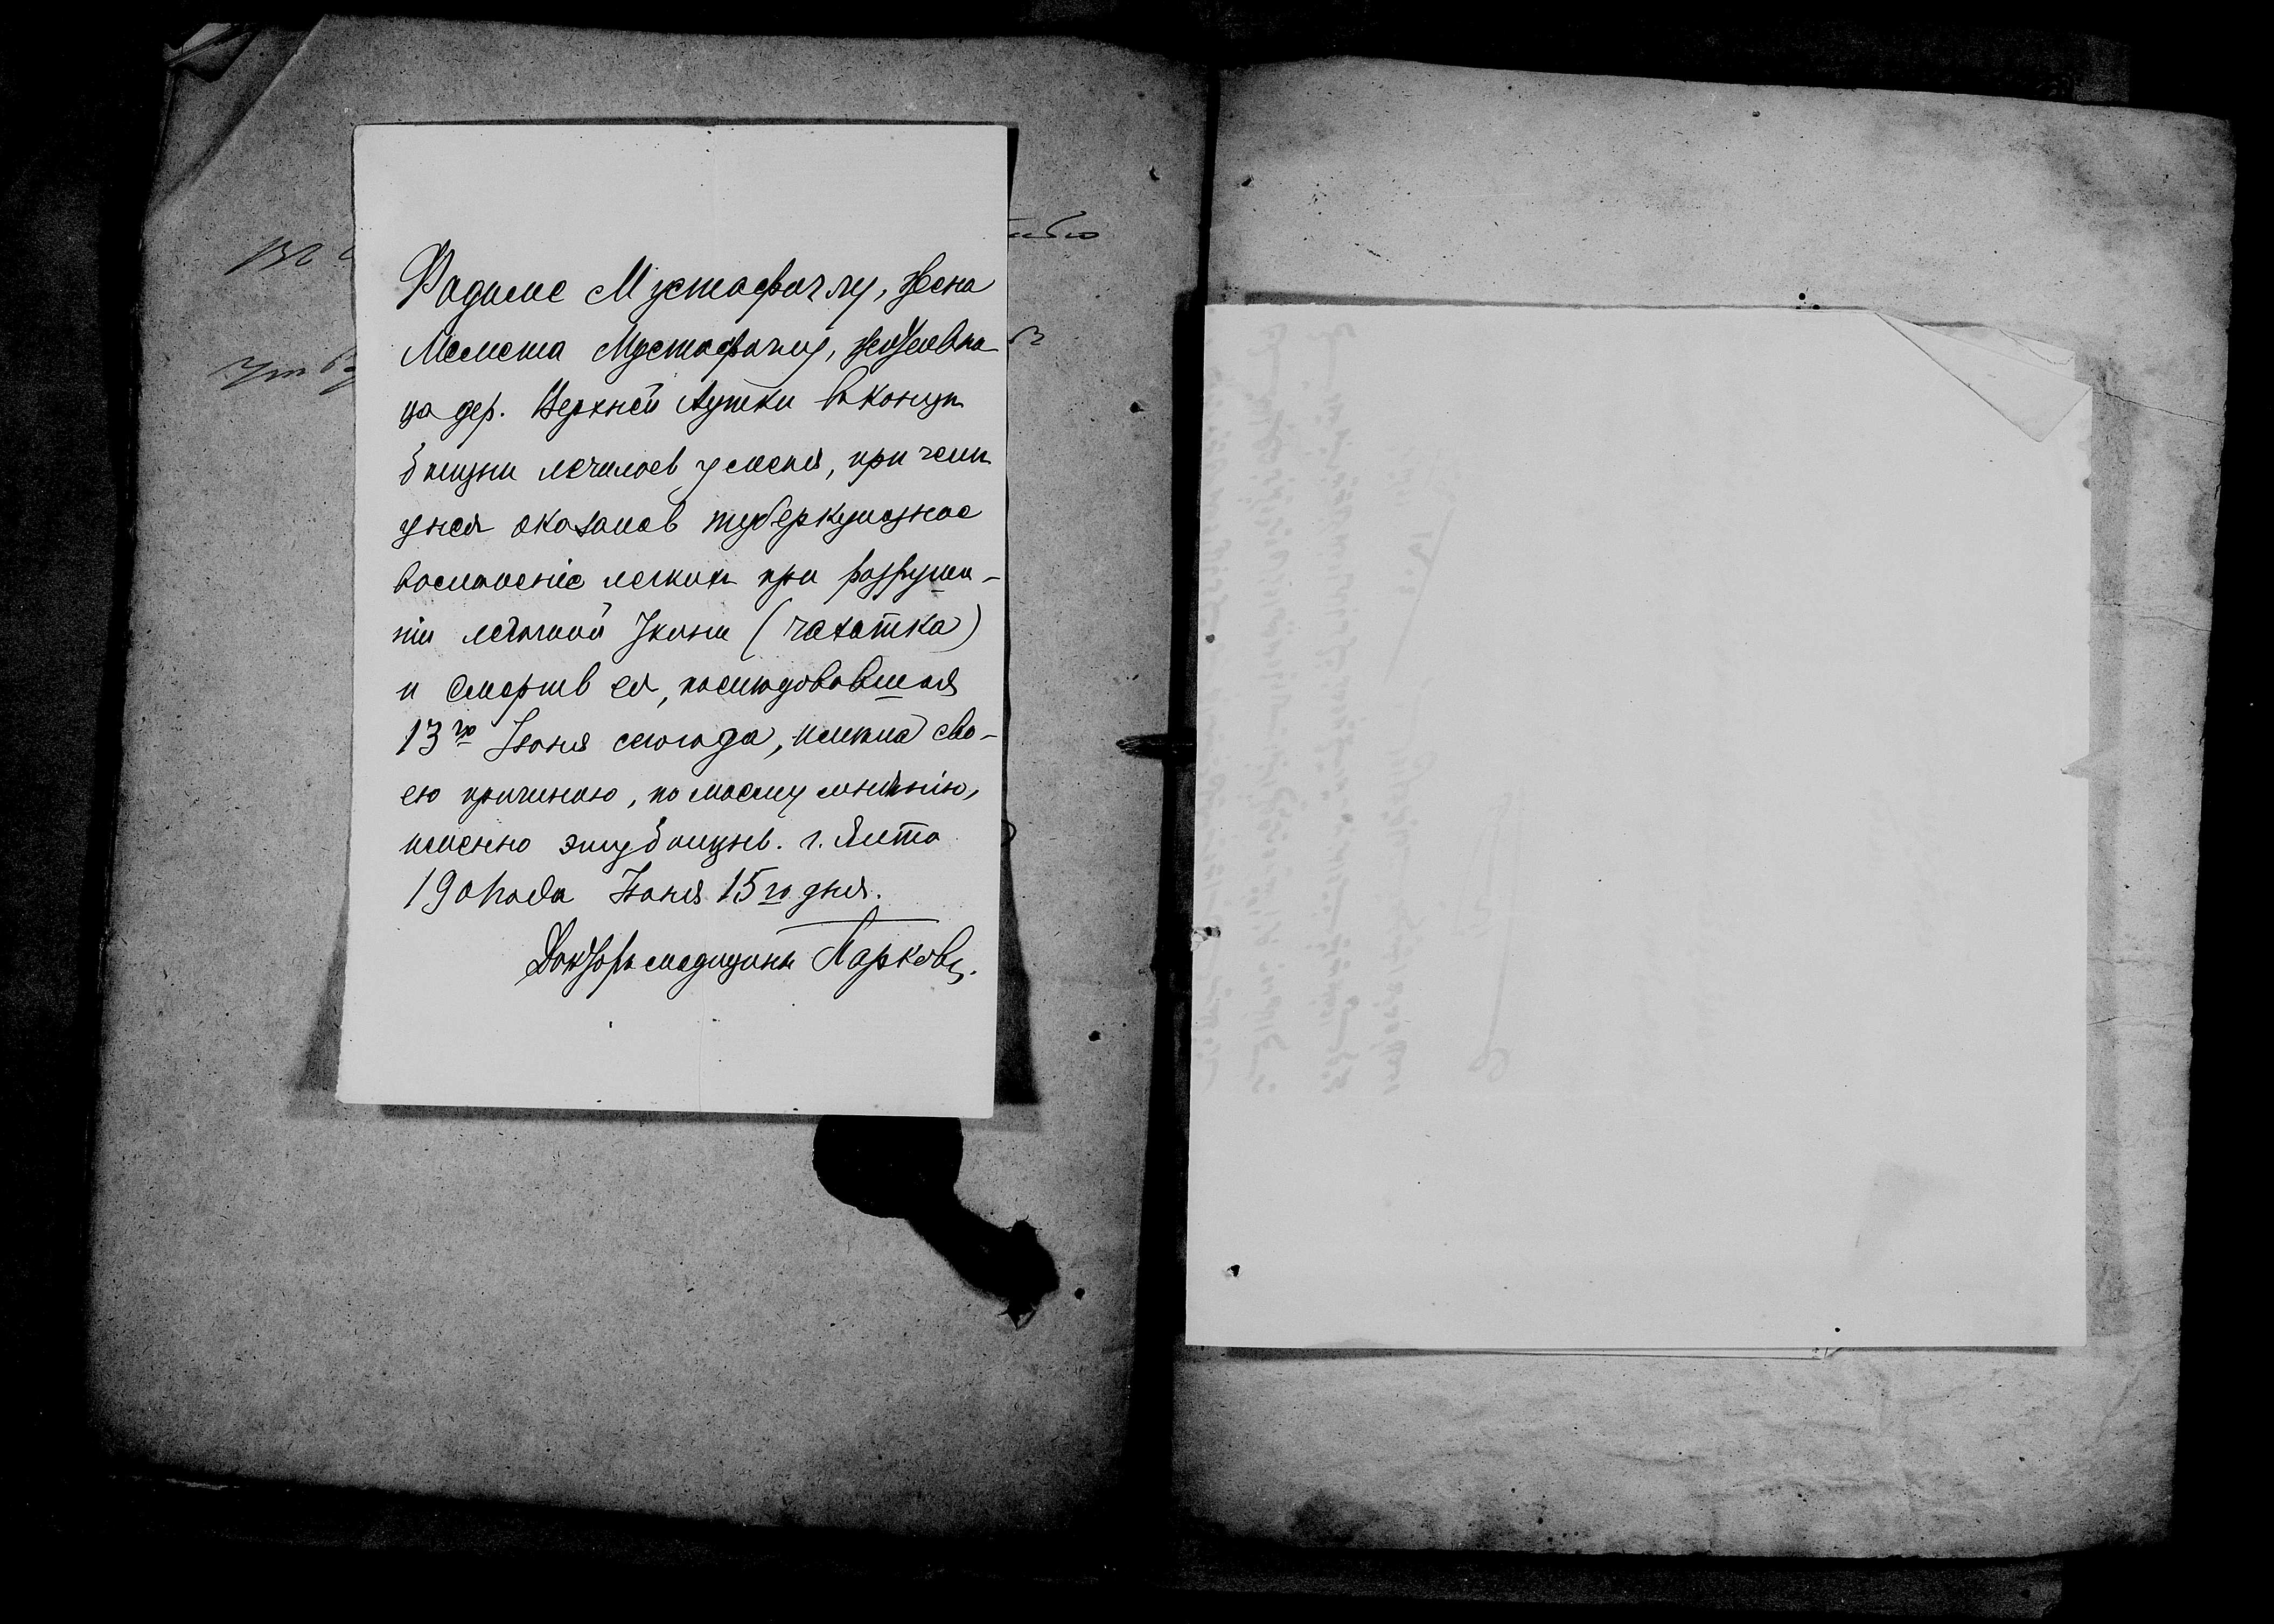 Фадиме Мустафаглу, жена
Мемета Мустафаглу, жительни-
ца дер. Верхней Аутки въ концѣ
болѣзни лечилась у меня, при чемъ
у нея оказалось туберкулезное
воспаленіе легкихъ при разруше-
ніи легочной ткани (чахотка)
и смерть ея, послѣдовавшая
13го Іюня сего года, имѣла сво-
ею причиною, по моему мнѣнію,
именно эту болѣзнь. г. Ялта
года Іюня 15го дня.
Докторъ медицины